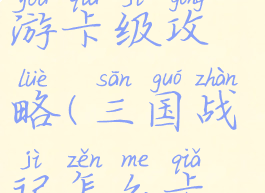 yóu qiǎ jí gōng
游卡级攻
lüè sān guó zhàn
略(三国战
jì zěn me qiǎ
记怎么卡